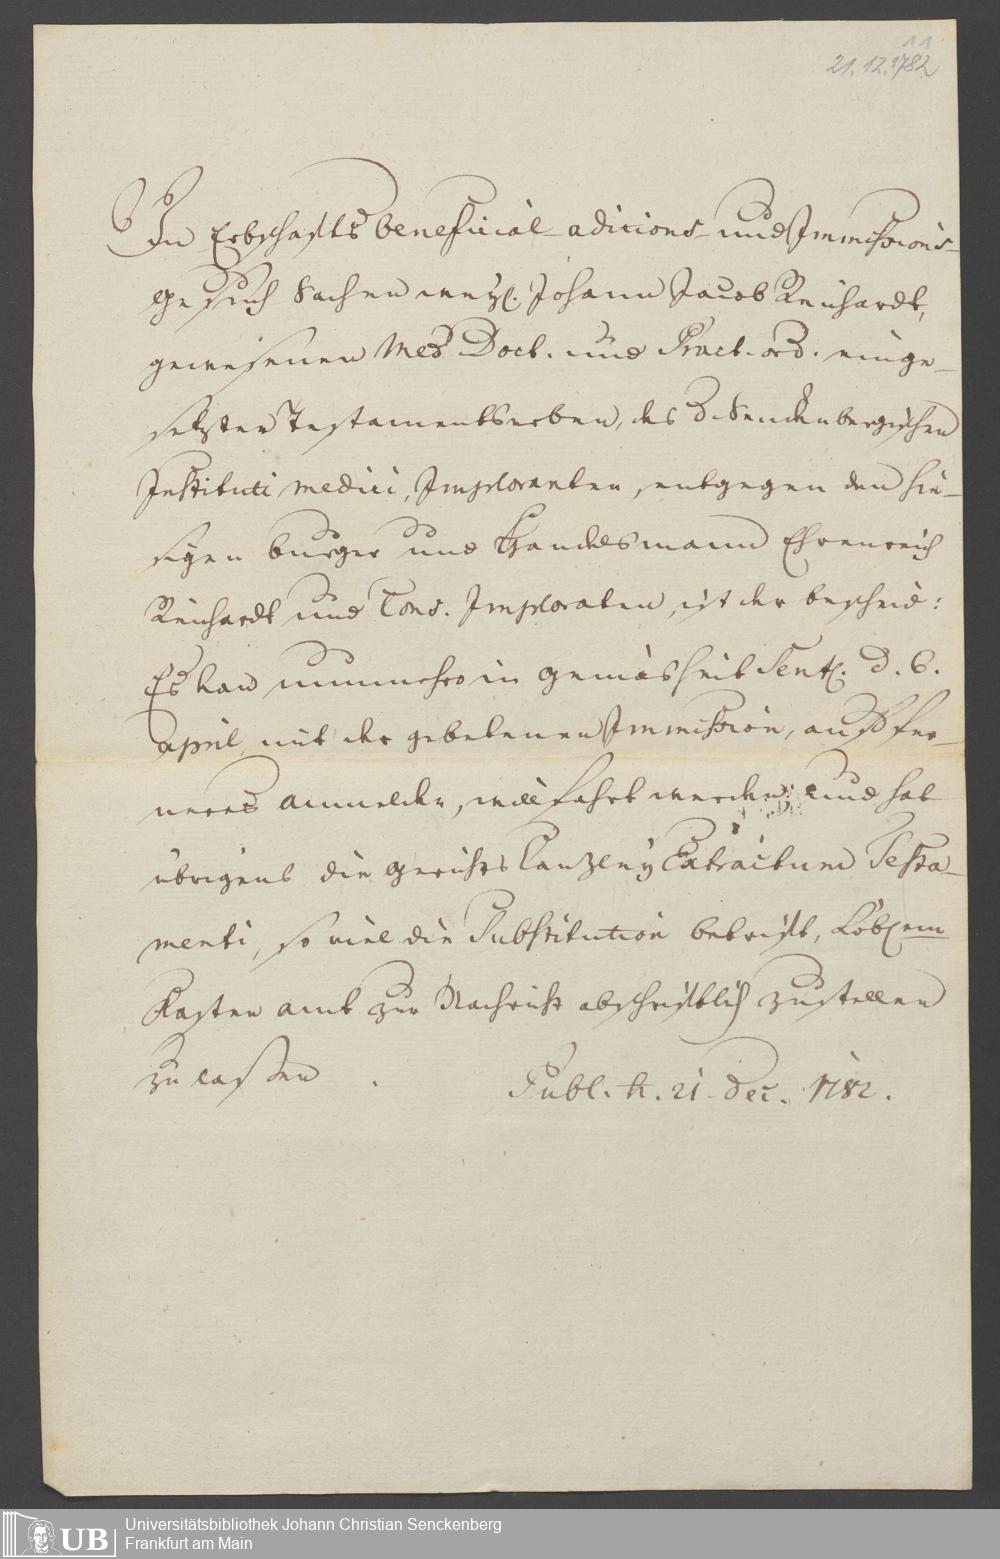 11
21.12.1782
In Erbschafts beneficial- aditions- und Immissions-
Gesuch Sachen weyl. Johann Jacob Reichardt,
gewesenen Med. Doct. und Pract. ord. einge-
setzter Testamentserben, des D. Senckenbergischen
Instituti medici, Imploranten, entgegen den hie-
sigen burger und Handelsmann Ehrenreich
Reichardt und Cons. Imploraten, ist der bescheid:
Es kan nunmehro in gemäsheit Sent. d. 6.
april, mit der gebetenen Immission, auf fer-
neres anmelden, willfahrt werden; und hat
übrigens die Gerichts Canzley Extractum Testa-
menti, so viel die Substitution betrift, Löbl.em
Kasten amt zur Nachricht abschriftlich zustellen
zu lassen.
Publ. d. 21 Dec. 1782.
UB
Universitätsbibliothek Johann Christian Senckenberg
Frankfurt am Main